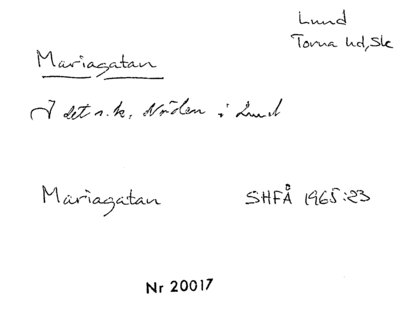 Lund
Torna hd, Sk
Mariagatan
I det s.k. Nöden i Lund
Mariagatan SHFÅ 1965:23
Nr 20017